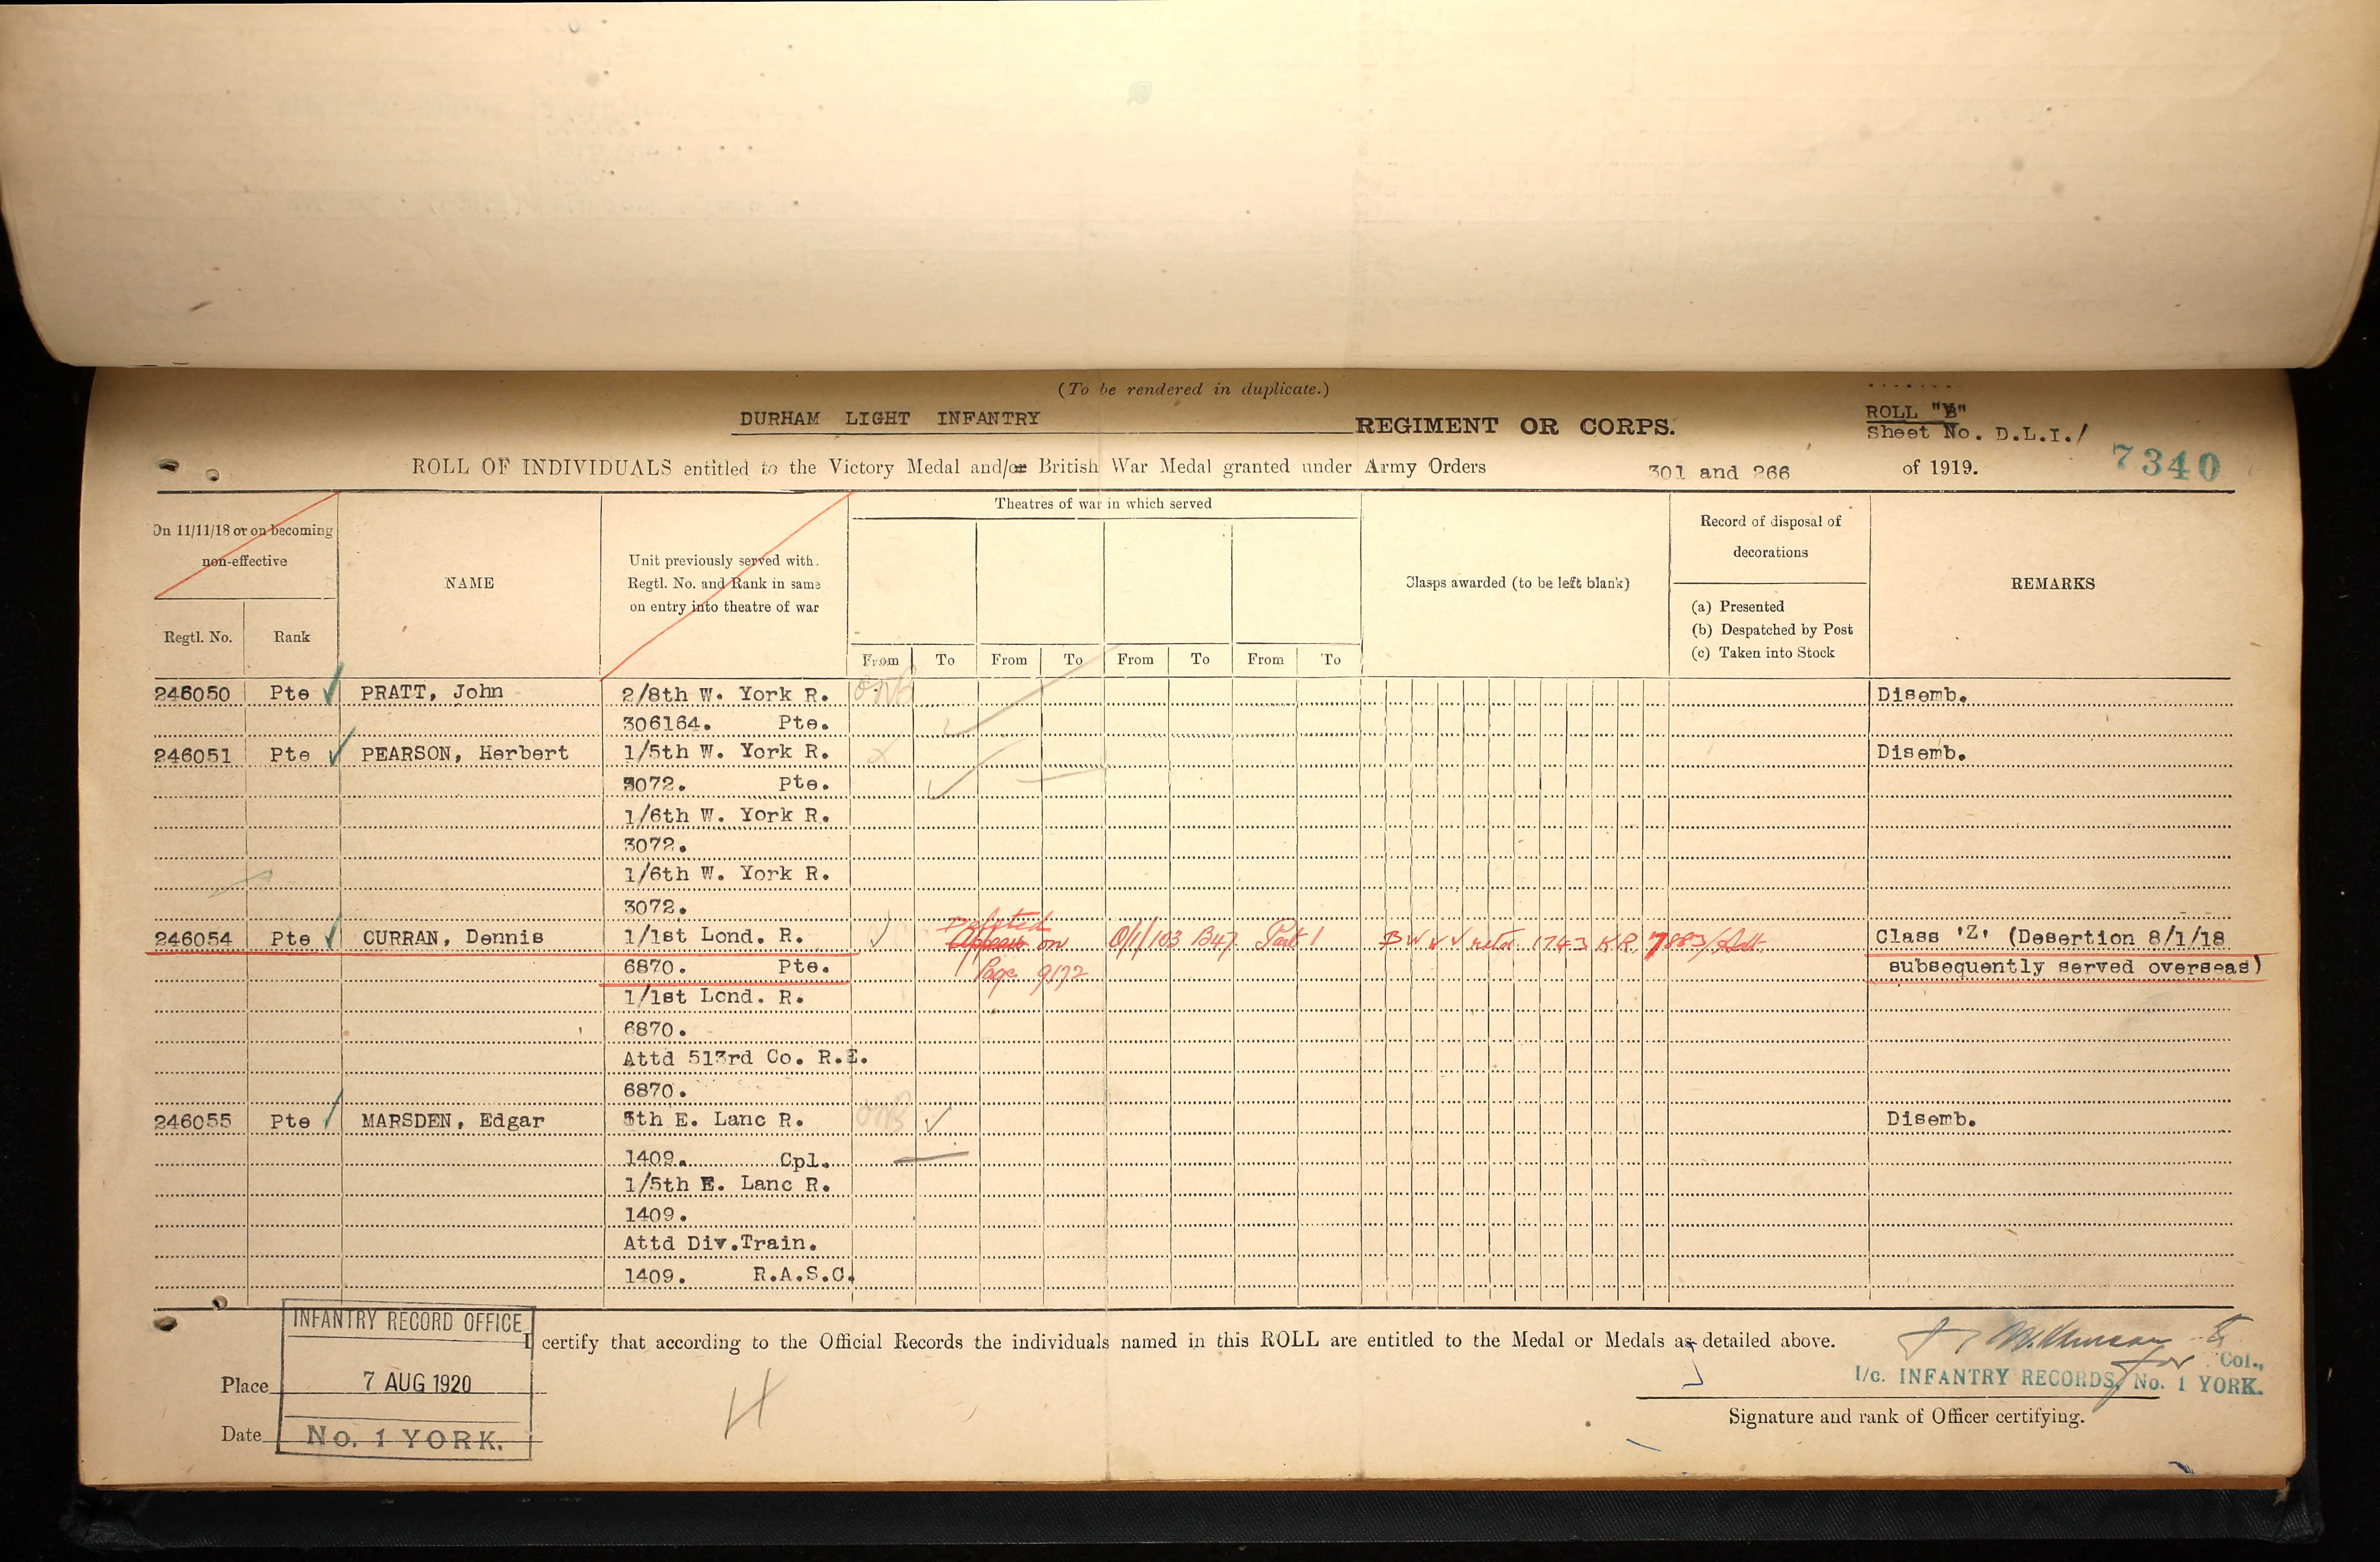 (To be rendered in duplicate.)
DURHAM LIGHT INFANTRY REGIMENT OR CORPS.
ROLL "B"
Sheet No. D.L.I./ 7340
ROLL OF INDIVIDUALS entitled to the Victory Medal and/or British War Medal granted under Army Orders 301 and 266 of 1919.
On 11/11/18 or on becoming non-effective
Regtl. No.
Rank
NAME
Unit previously served with. Regtl. No. and Rank in same on entry into theatre of war
Theatres of war in which served
From To From To From To From To
Clasps awarded (to be left blank)
Record of disposal of decorations
(a) Presented
(b) Despatched by Post
(c) Taken into Stock
REMARKS
246050 Pte PRATT, John 2/8th W. York R. Disemb.
306164. Pte.
246051 Pte PEARSON, Herbert 1/5th W. York R. Disemb.
3072. Pte.
1/6th W. York R.
3072.
1/6th W. York R.
3072.
246054 Pte CURRAN, Dennis 1/1st Lond. R. on 0/1/103 B47 Part 1 Class 'Z' (Desertion 8/1/18
6870. Pte. Page 9172 subsequently served overseas)
1/1st Lond. R.
6870.
Attd 513rd Co. R.E.
6870.
246055 Pte MARSDEN, Edgar 5th E. Lanc R. Disemb.
1409. Cpl.
1/5th E. Lanc R.
1409.
Attd Div.Train.
1409. R.A.S.C.
INFANTRY RECORD OFFICE
7 AUG 1920
No. 1 YORK.
I certify that according to the Official Records the individuals named in this ROLL are entitled to the Medal or Medals as detailed above.
Place
Date
for Col.,
I/c. INFANTRY RECORDS, No. 1 YORK.
Signature and rank of Officer certifying.